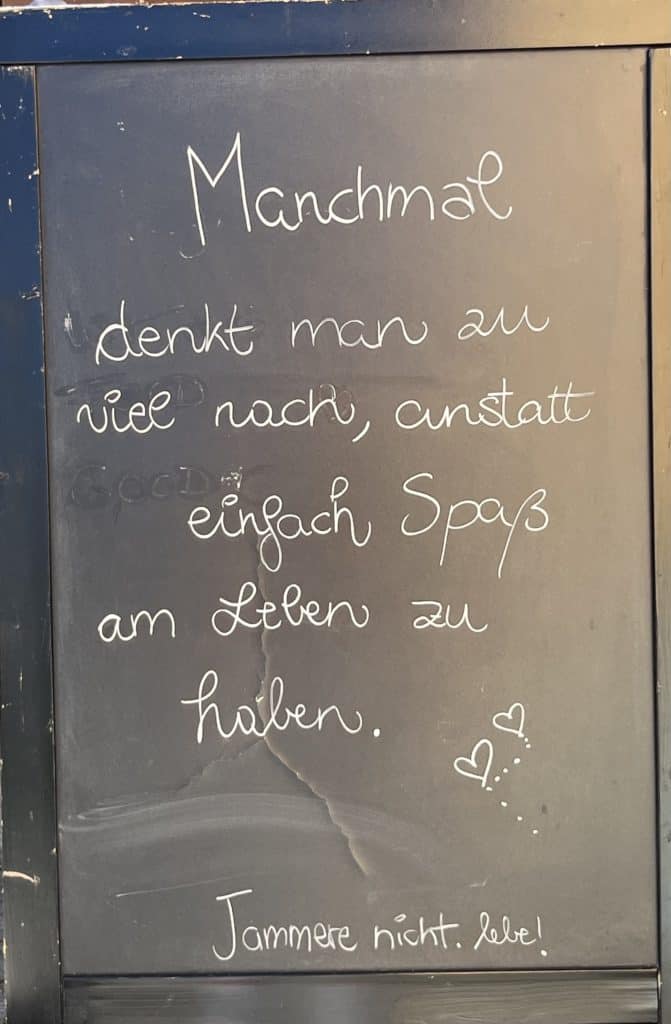 Manchmal
denkt man zu
viel nach, anstatt
einfach Spaß
am Leben zu
haben.
Jammere nicht. lebe!